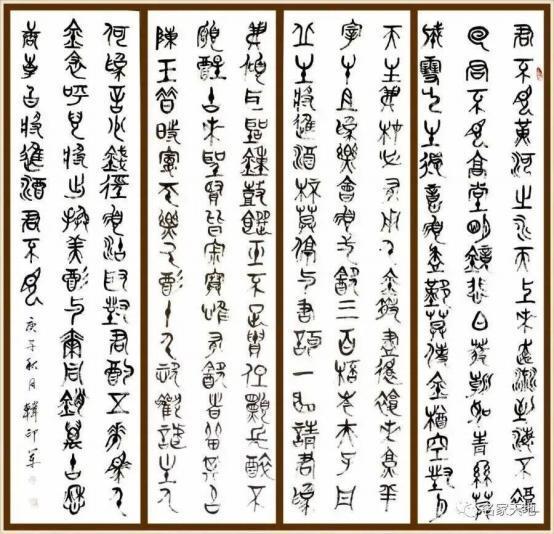 君不見黃河之水天上來奔流到海不復
回君不見高堂明鏡悲白髮朝如青絲莫
成雪人生得意須盡歡莫使金樽空對月
天生我材必有用千金散盡還復來烹羊
宰牛且爲樂會須一飲三百杯岑夫子丹
丘生將進酒杯莫停與君歌一曲請君爲
我傾耳聽鐘鼓饌玉不足貴但願長醉不
願醒古來聖賢皆寂寞惟有飲者留其名
陳王昔時宴平樂斗酒十千恣歡謔主人
何爲言少錢徑須沽取對君酌五花馬千
金裘呼兒將出換美酒與爾同銷萬古愁
李白將進酒君不見
庚子秋月韓印軍
名家天地